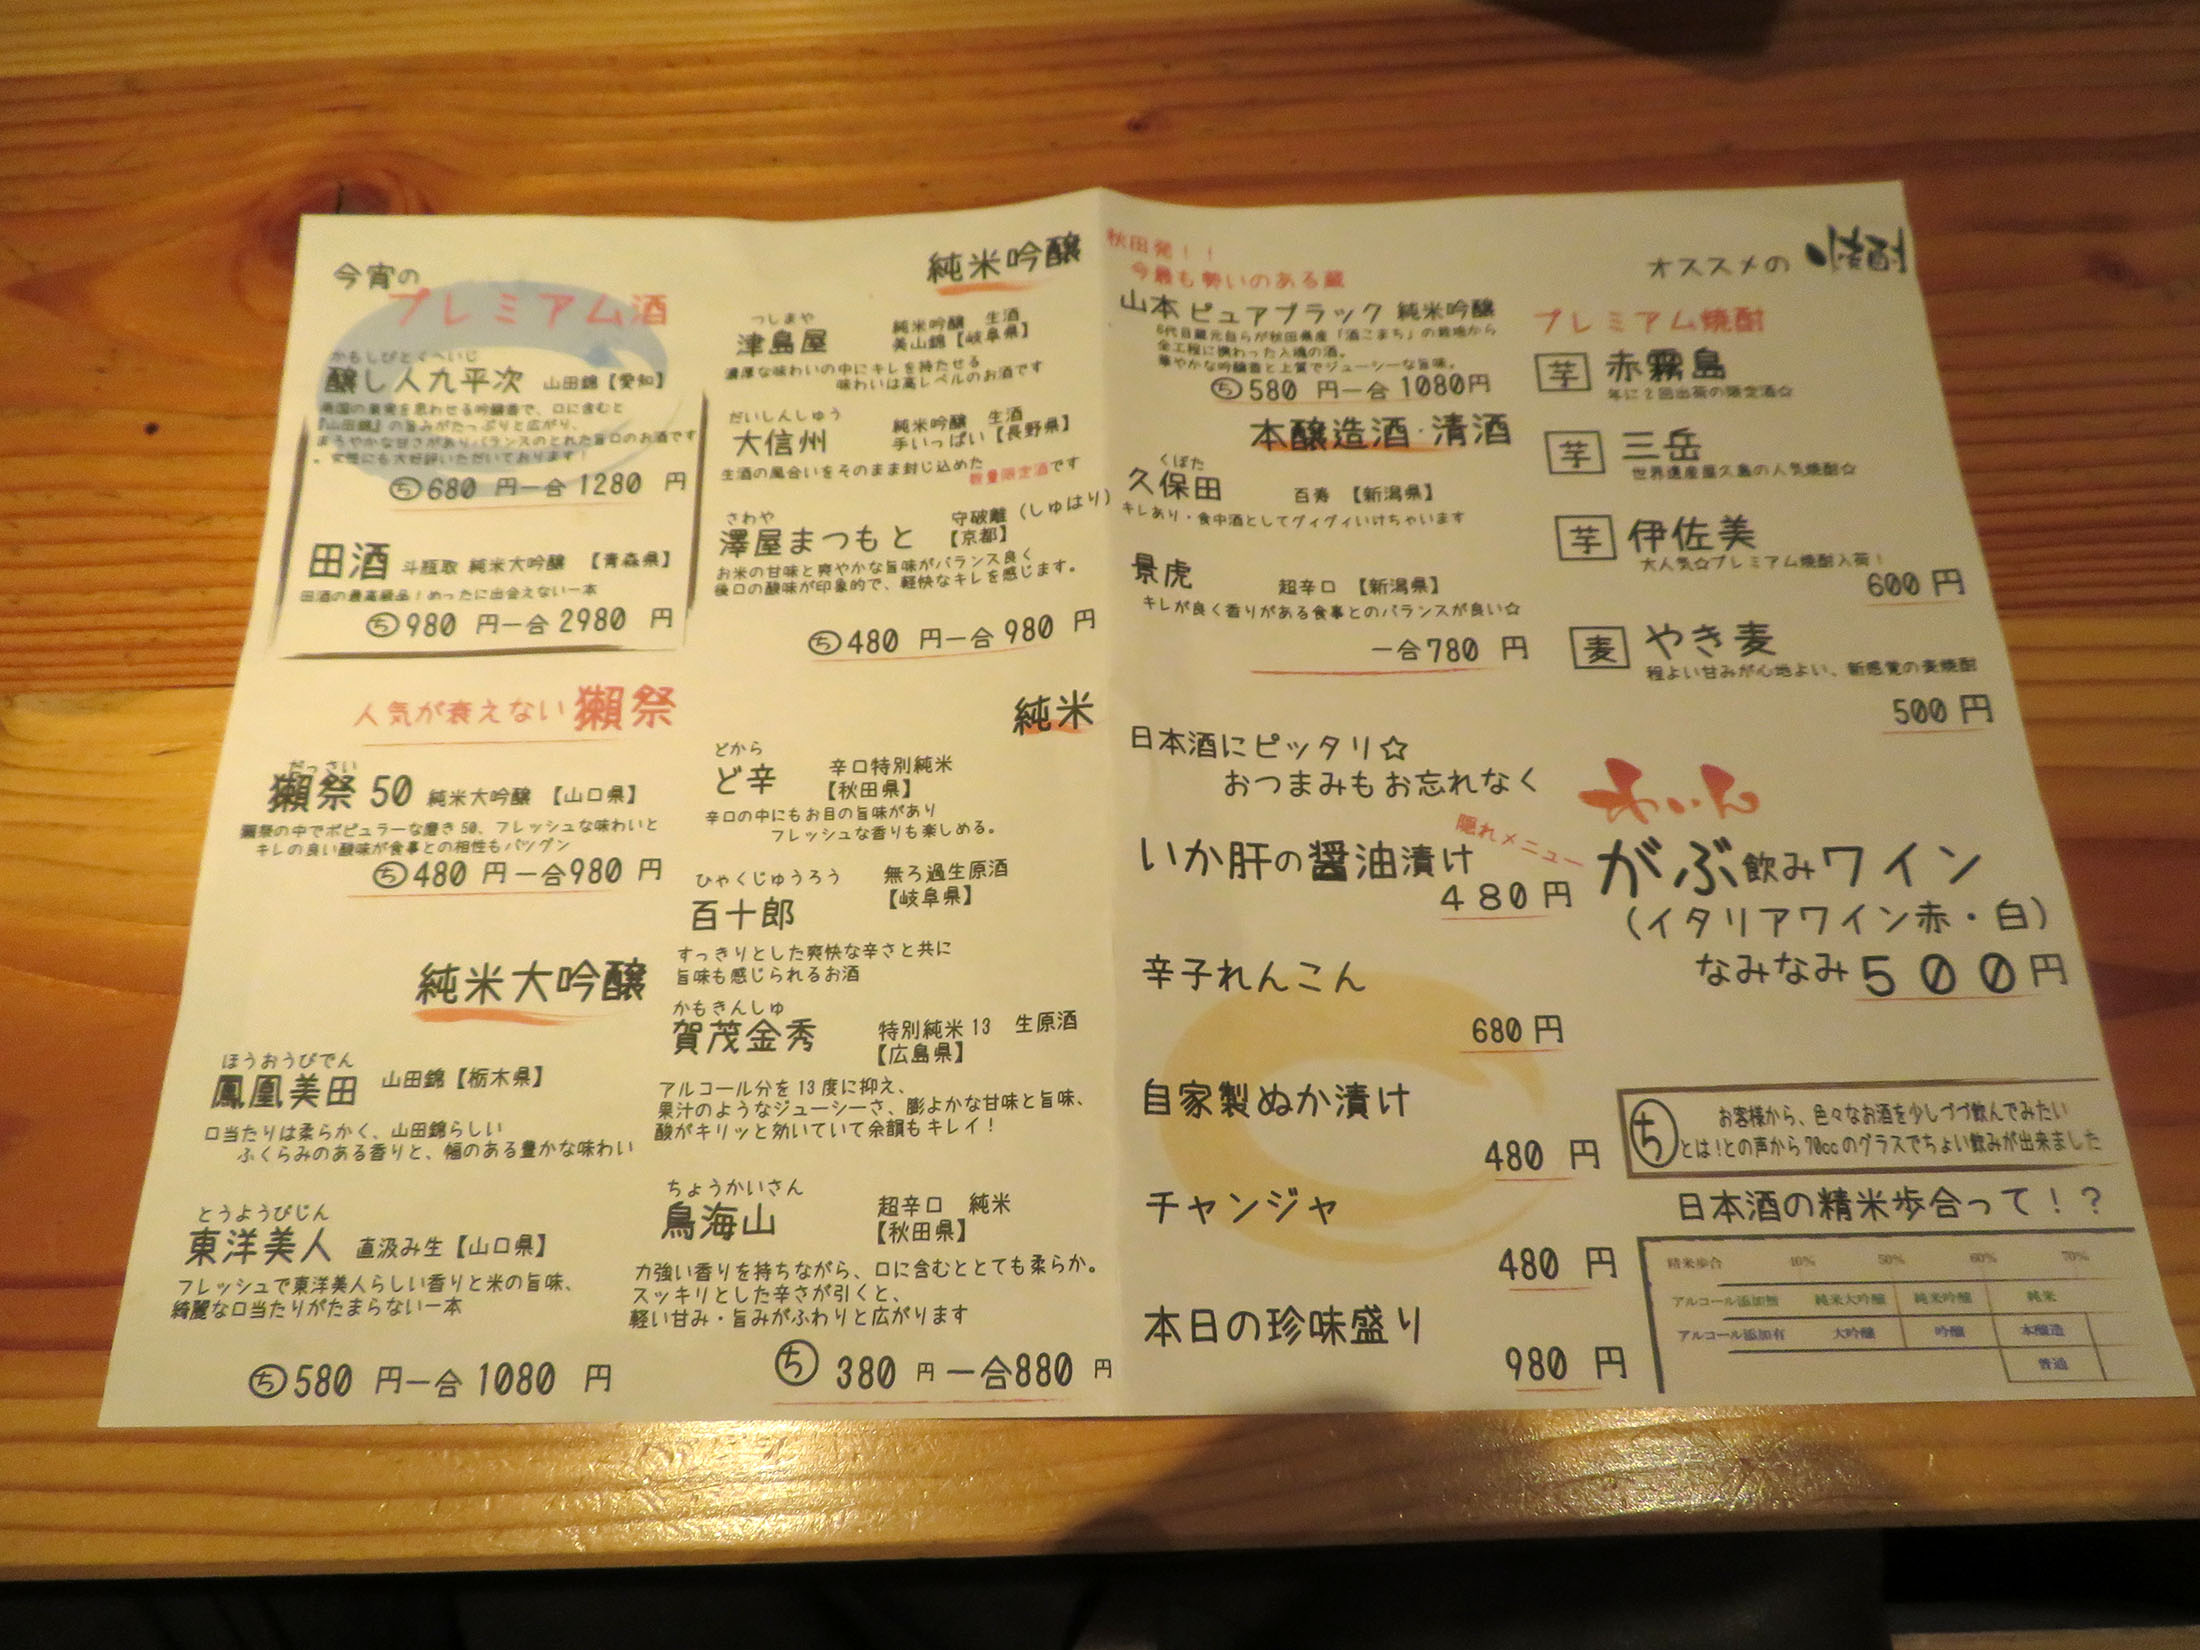 今宵の
プレミアム酒
かもしびとくへいじ
醸し人九平次 山田錦【愛知】
南国の果実を思わせる吟醸香で、口に含むと
『山田錦』の旨みがたっぷりと広がり、
まろやかな甘さがありバランスのとれた旨口のお酒です
。女性にも大好評いただいております!
ち680 円一合1280 円
田酒 斗瓶取 純米大吟醸 【青森県】
田酒の最高級品!めったに出会えない一本
ち980 円一合2980 円
人気が衰えない獺祭
だっさい
獺祭50 純米大吟醸 【山口県】
獺祭の中でポピュラーな磨き50、フレッシュな味わいと
キレの良い酸味が食事との相性もバツグン
ち480 円一合980 円
純米大吟醸
ほうおうびでん
鳳凰美田 山田錦【栃木県】
口当たりは柔らかく、山田錦らしい
ふくらみのある香りと、幅のある豊かな味わい
とうようびじん
東洋美人 直汲み生【山口県】
フレッシュで東洋美人らしい香りと米の旨味、
綺麗な口当たりがたまらない一本
ち580 円一合1080 円
純米吟醸
つしまや
津島屋 純米吟醸 生酒
美山錦【岐阜県】
濃厚な味わいの中にキレを持たせる
味わいは高レベルのお酒です
だいしんしゅう
大信州 純米吟醸 生酒
手いっぱい【長野県】
生酒の風合いをそのまま封じ込めた
数量限定酒です
さわや
澤屋まつもと 守破離(しゅはり)
【京都】
お米の甘味と爽やかな旨味がバランス良く
後口の酸味が印象的で、軽快なキレを感じます。
ち480 円一合980 円
純米
どから
ど辛 辛口特別純米
【秋田県】
辛口の中にもお目の旨味があり
フレッシュな香りも楽しめる。
ひゃくじゅうろう
百十郎 無ろ過生原酒
【岐阜県】
すっきりとした爽快な辛さと共に
旨味も感じられるお酒
かもきんしゅ
賀茂金秀 特別純米13 生原酒
【広島県】
アルコール分を13度に抑え、
果汁のようなジューシーさ、膨よかな甘味と旨味、
酸がキリッと効いていて余韻もキレイ!
ちょうかいさん
鳥海山 超辛口 純米
【秋田県】
力強い香りを持ちながら、口に含むととても柔らか。
スッキリとした辛さが引くと、
軽い甘み・旨みがふわりと広がります
ち 380 円 一合880 円
秋田発!!
今最も勢いのある蔵
山本 ピュアブラック 純米吟醸
6代目蔵元自らが秋田県産「酒こまち」の栽培から
全工程に携わった入魂の酒。
華やかな吟醸香と上質でジューシーな旨味。
ち580 円一合1080円
本醸造酒・清酒
くぼた
久保田 百寿 【新潟県】
キレあり・食中酒としてグィグィいけちゃいます
景虎 超辛口 【新潟県】
キレが良く香りがある食事とのバランスが良い☆
一合780 円
日本酒にピッタリ☆
おつまみもお忘れなく
いか肝の醤油漬け
480円
辛子れんこん
680円
自家製ぬか漬け
480 円
チャンジャ
480 円
本日の珍味盛り
980 円
オススメの 焼酎
プレミアム焼酎
芋 赤霧島
年に2回出荷の限定酒☆
芋 三岳
世界遺産屋久島の人気焼酎☆
芋 伊佐美
大人気☆プレミアム焼酎入荷!
600円
麦 やき麦
程よい甘みが心地よい、新感覚の麦焼酎
500円
わいん
隠れメニュー
がぶ飲みワイン
(イタリアワイン赤・白)
なみなみ500円
ち お客様から、色々なお酒を少しづつ飲んでみたい
とは!との声から70ccのグラスでちょい飲みが出来ました
日本酒の精米歩合って!?
精米歩合 40% 50% 60% 70%
アルコール添加無 純米大吟醸 純米吟醸 純米
アルコール添加有 大吟醸 吟醸 本醸造
普通